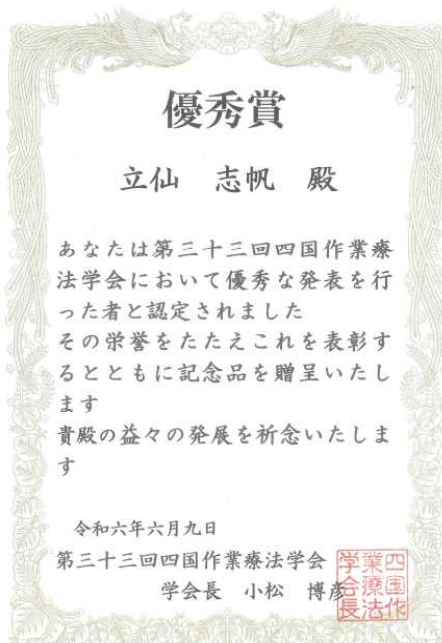 優秀賞
立仙 志帆 殿
あなたは第三十三回四国作業療
法学会において優秀な発表を行
った者と認定されました
その栄誉をたたえこれを表彰す
るとともに記念品を贈呈いたし
ます
貴殿の益々の発展を祈念いたしま
す
令和六年六月九日
第三十三回四国作業療法学会
学会長 小松 博彦
四国作
業療法
学会長